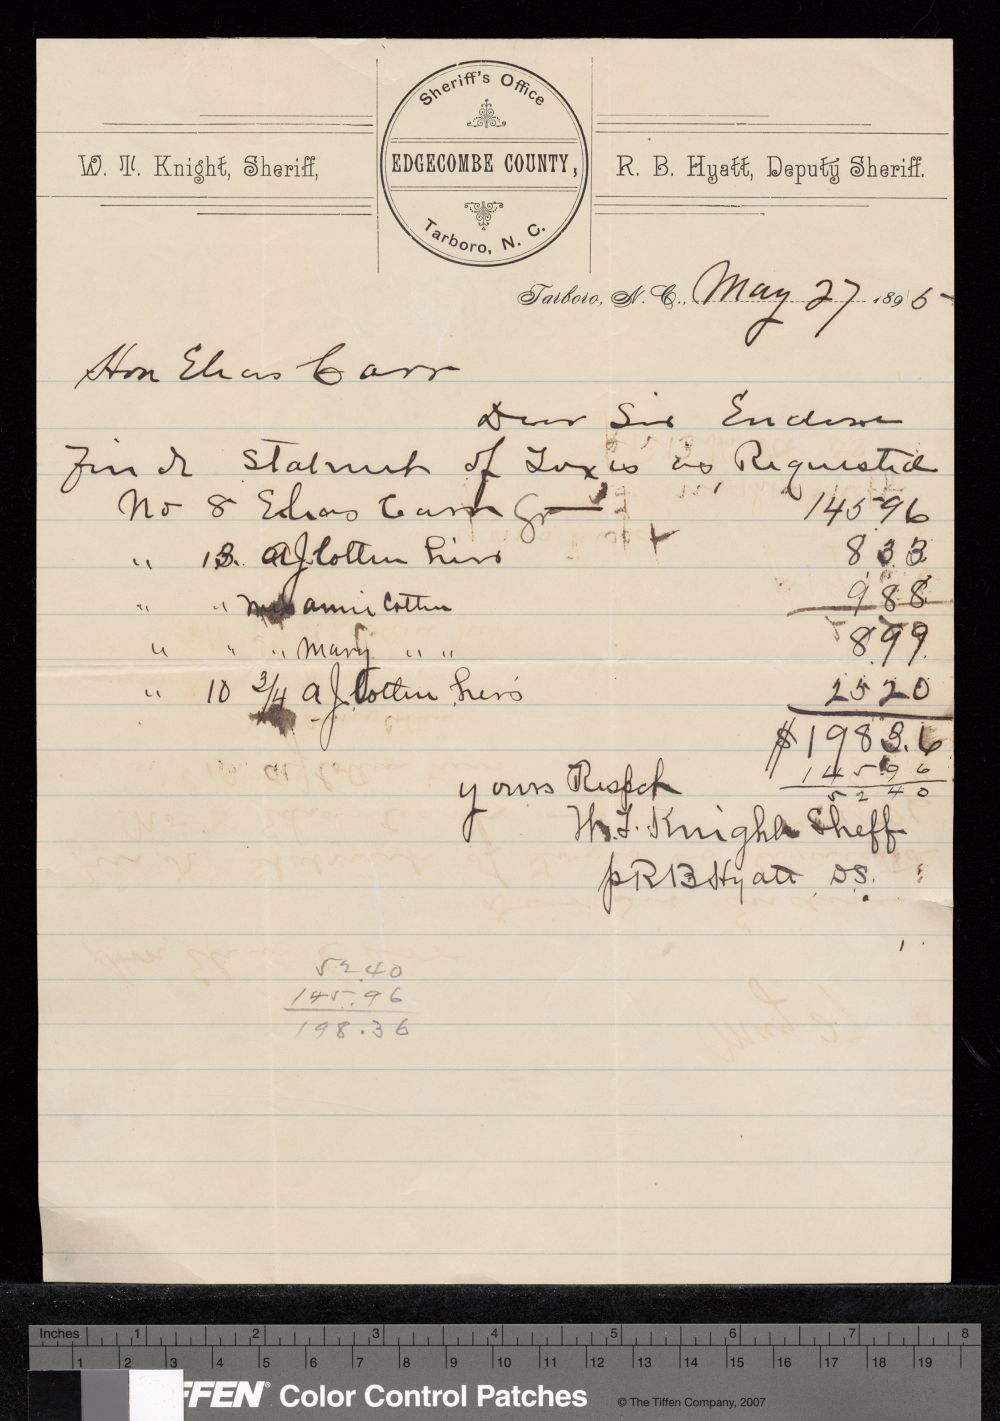 Sheriff's Office
EDGECOMBE COUNTY,
Tarboro, N. C.
W. T. Knight, Sheriff,
R. B. Hyatt, Deputy Sheriff.
Tarboro, N. C., May 27 1895
Hon Elias Carr
Dear Sir Enclose
Find Statment of Taxes as Requested
No 8 Elias Carr 145 96
" 13. A J Cotten hirs 8 33
" " Miss annie Cotten 9 88
" " " Mary " " 8.99
" 10 3/4 A J Cotten hirs 25 20
$ 198 3.6
145.96
52 40
yours Respct
W. T. Knight Sheff
p R B Hyatt DS.
52.40
145.96
198.36
Inches 1 2 3 4 5 6 7 8
1 2 3 4 5 6 7 8 9 10 11 12 13 14 15 16 17 18 19
FFEN® Color Control Patches © The Tiffen Company, 2007